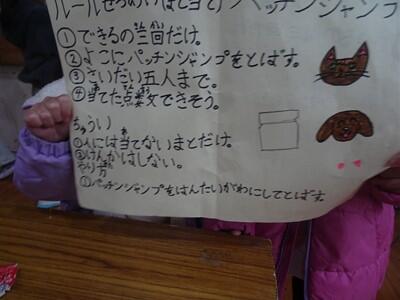 ルールせつめい(まと当て)パッチンジャンプ
①できるの三回だけ。
②よこにパッチンジャンプをとばす。
③さいだい五人まで。
④当てた点数できそう。
ちゅうい
①人には当てないまとだけ。
②けんかはしない。
やり方
①パッチンジャンプをはんたいがわにしてとばす。